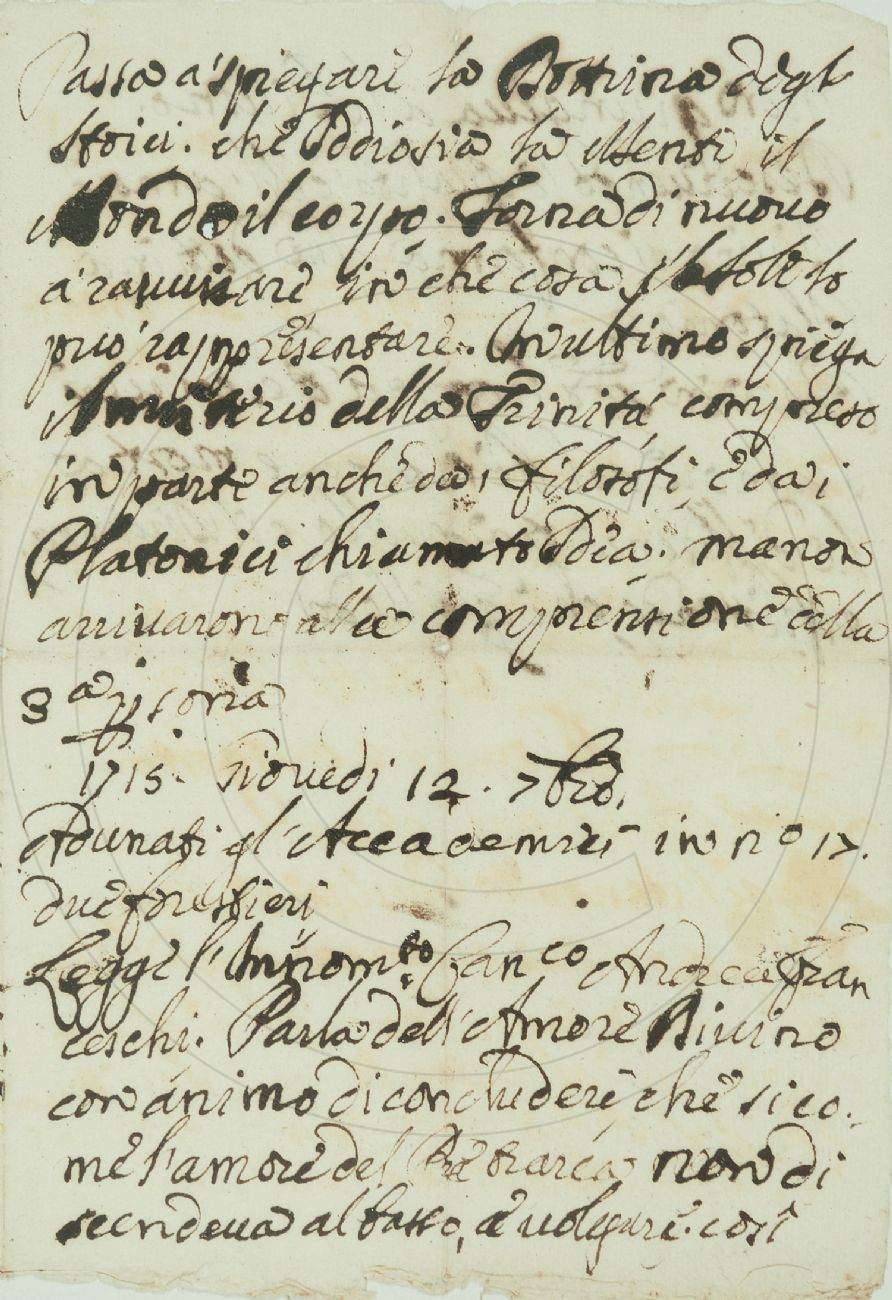 Passa a' spiegare la Dottrina degl'
Stoici. che Iddio sia la Mente, il
Mondo il corpo. Torna di nuovo
a' ravvisare in che cosa il Sole lo
può rappresentare. In ultimo spiega
il misterio della Trinità compreso
in parte anche da i filosofi, e da i
Platonici chiamato Idea. ma non
arrivarono alla comprensione della
3.a
1715. Giovedi 12. 7bre.
Adunati gl' Accademici in n.o 17.
due forestieri
Legge l'Innom.to Can.co Andrea Fran
ceschi. Parla dell'Amore Divino
con animo di concludere, che si co-
me l'amore del Petrarca non di
scendeva al basso, e volgare. così